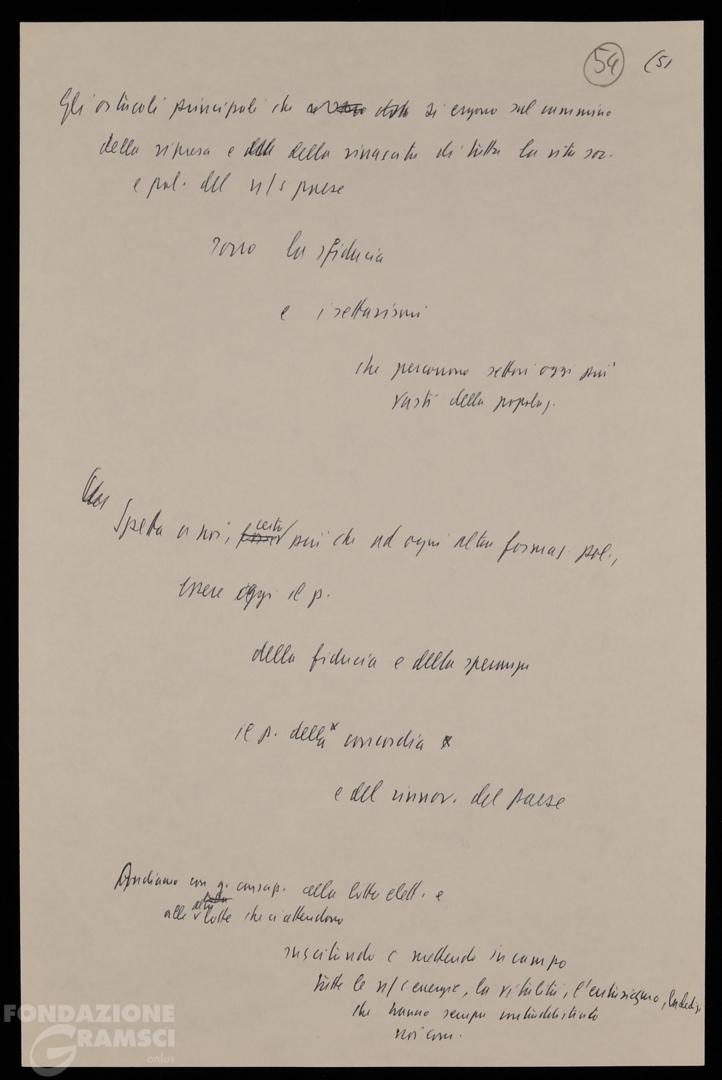 54 (51
Gli ostacoli principali che si ergono sul cammino
della ripresa e della rinascita di tutta la vita soc.
e pol. del n/s paese
sono la sfiducia
e i settarismi
che percorrono settori oggi più
vasti della popolaz.
Spetta a noi, certo più che ad ogni altra formaz. pol.,
essere oggi il p.
della fiducia e della speranza
il p. della concordia
e del rinnov. del paese
Andiamo con q. consap. alla lotta elett. e
alle altre lotte che ci attendono
suscitando e mettendo in campo
tutte le n/s energie, la vitalità, l'entusiasmo,
che hanno sempre contraddistinto
noi com.
FONDAZIONE
GRAMSCI
onlus